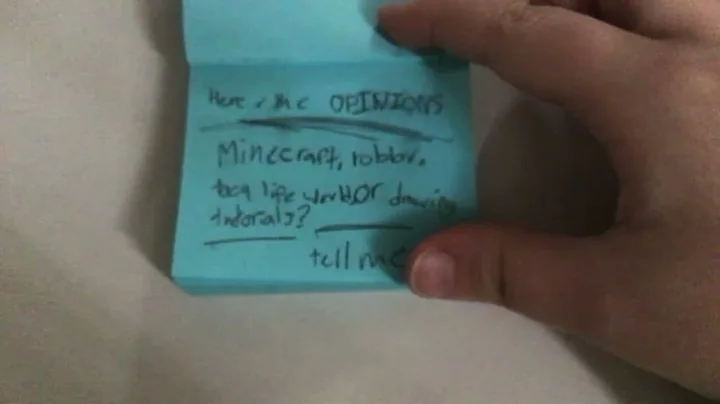 Here the OPINIONS
Minecraft,
life world, or drawing
tutorals?
tell me